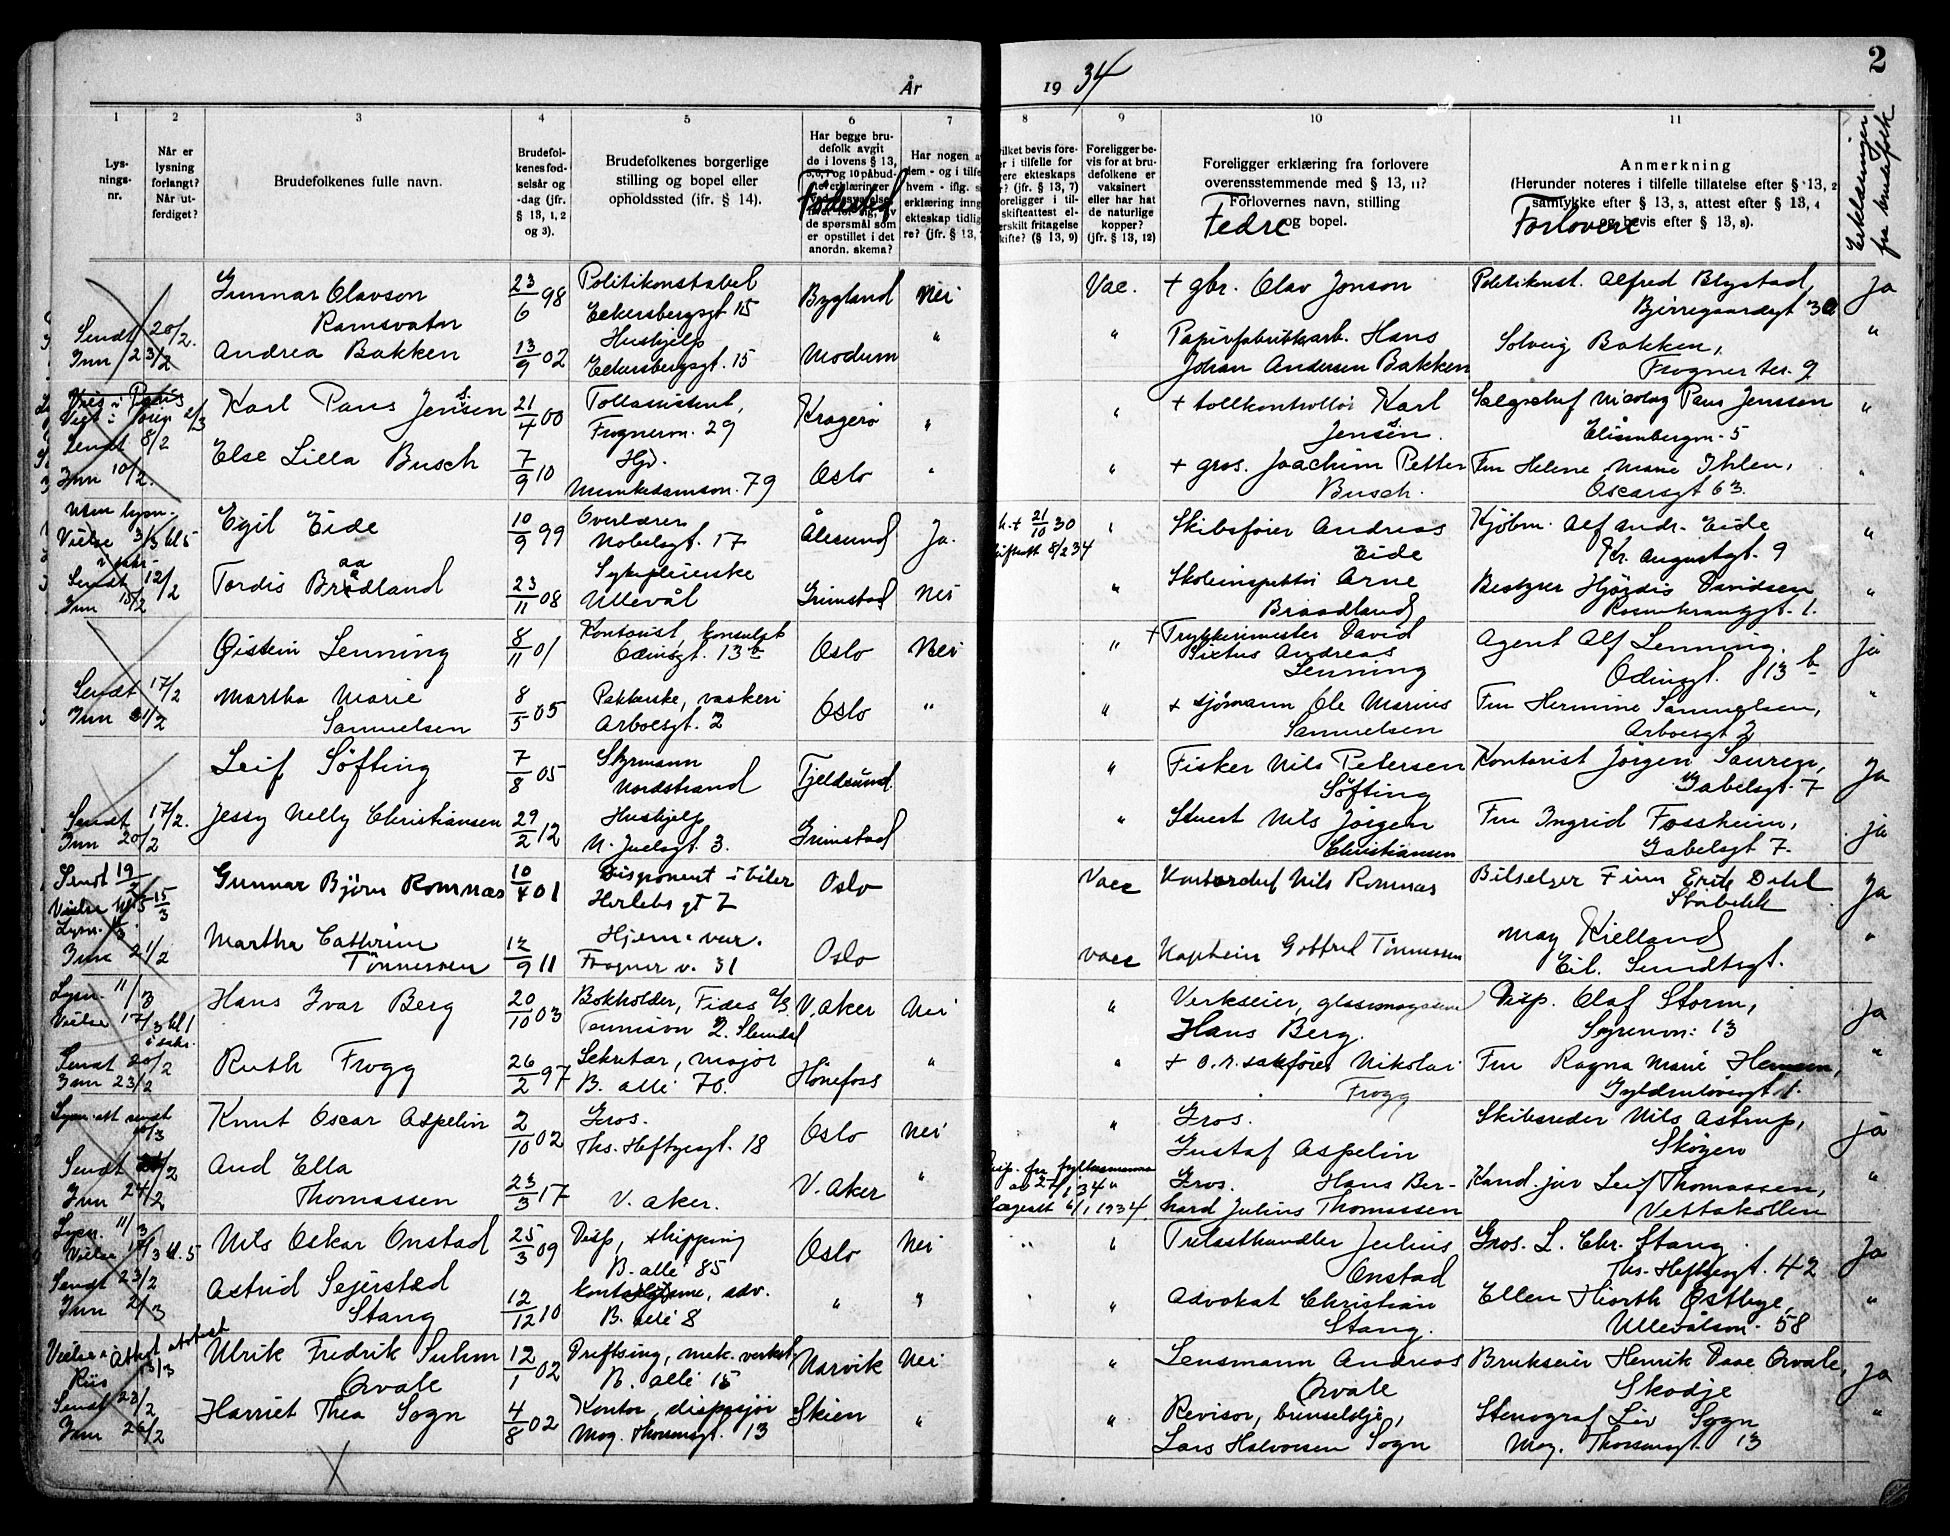 År 1934
2
1 2 3 4 5 6 7 8 9 10 11
Lys-
nings-
nr.
Når er
lysning
forlangt?
Når ut-
ferdiget?
Brudefolkenes fulle navn.
Brudefol-
kenes fød-
selsår og
-dag (jfr.
§ 13, 1, 2
og 3).
Brudefolkenes borgerlige
stilling og bopel eller
opholdssted (jfr. § 14).
Har begge bru-
defolk avgit
de i lovens § 13,
5, 6, 7 og 10 påbud-
Fødested
de spørsmål som
er opstillet i det
anordn. skema?
Har nogen a
dem - og i tilfe
hvem - iflg. s
erklæring inng
ekteskap tidlig
re? (jfr. § 13,
vilket bevis fore-
r i tilfelle for
ere ekteskaps
r? (jfr. § 13, 7)
oreligger i til-
skifteattest el-
erskilt fritagelse
kifte? (§ 13, 9)
Foreligger be-
vis for at bru-
defolkene er
vaksinert
eller har hat
de naturlige
kopper?
(jfr. § 13, 12)
Foreligger erklæring fra forlovere
overensstemmende med § 13, 11?
Forlovernes navn, stilling
og bopel.
Fedre
Anmerkning
(Herunder noteres i tilfelle tillatelse efter § 13, 2
samtykke efter § 13, 3, attest efter § 13, 4
og bevis efter § 13, 8).
Forlovere
Erklæringer
fra brudefolk
Gunnar Olavson 23/6 98 Politikonstabel Bygland Nei Vac. + gbr. Olav Jonson Politikonst. Alfred Blystad, Ja
Ramsvatn Eckersbergsgt 15 Bjerregaardsgt 30
Sendt 20/2. Hushjelp " " Papirfabrikkarb. Hans Solveig Bakken, "
Inn 23/2 Andrea Bakken 13/9 02 Eckersbergsgt. 15 Modum Johan Andersen Bakken Frogner ter. 9
Karl Paus Jenssen 21/4 00 Tollassistent, Kragerø " " + tollkontrollør Karl Salgschef Nicolay Paus Jenssen "
Sendt 8/2 Frognervn. 29 Jenssen. Elisenbergvn. 5
Else Lilla Busch 7/9 10 Hjv. Oslo " " + gros. Joachim Petter Fru Helene Marie Ihlen, "
Inn 10/2. Munkedamsvn. 79 Busch. Oscarsgt 63.
Uten lysn.
Vielse 3/3 kl 5 Egil Eide 10/9 99 Overlærer Ålesund Ja. 21/10 30 " Skibsfører Andreas Kjøbm. Alf Andr. Eide "
i sakr. Nobelsgt. 17 8/2 34 Eide Kr. Augustsgt. 9
Sendt 12/2 Tordis Braadland 23/11 08 Sykepleierske Grimstad Nei " Skoleinspektør Arne Bestyrer Hjördis Davidsen "
Inn 15/2 Ullevål Braadland Rosenkrantzgt. 1.
Øistein Lenning 8/11 01 Kontorist, konsulat Oslo Nei " + Trykkerimester David Agent Alf Lenning. ja
Odinsgt. 13 b Sixtus Andreas Lenning Odinsgt. 13 b
Sendt 17/2 Martha Marie 8/5 05 Pakkerske, vaskeri Oslo " " + sjömann Ole Marius Fru Hermine Samuelsen, "
Inn 21/2 Samuelsen Arboesgt. 2 Samuelsen Arboesgt 2
Leif Söfting 7/8 05 Styrmann Tjeldsund " Fisker Nils Petersen Kontorist Jörgen Sauren, Ja
Nordstrand Söfting Gabelsgt. 7
Sendt 17/2. Jessy Nelly Christiansen 29/2 12 Hushjelp Grimstad " Stuert Nils Jörgen Fru Ingrid Fossheim, ja
Inn 20/2 N. Juelsgt. 3. Christiansen Gabelsgt 7.
Sendt 19/2 Gunnar Björn Romnæs 10/4 01 Disponent i biler Oslo Vacc Kontorchef Nils Romnæs Bilselger Finn Erik Dahl Ja
Vielse kl 5 15/3 Herlebs gt 7 Stabekk
Inn 21/2 Martha Cathrine 12/9 11 Hjem. vær. Oslo vacc Kaptein Gotfred Tönnessen May Kielland "
Tönnessen Frogner v. 31 Eil. Sundtsgt.
Lysn. 11/3 Hans Ivar Berg 20/10 03 Bokholder, Fides a/s. V. Aker Nei " Verkseier, glassmagasin Disp. Olaf Storm, Ja
Vielse 17/3 kl 1 i sakr. 2. Slemdal Hans Berg. Syrenvn: 13
Sendt 20/2 Ruth Frogg 26/2 97 Sekretær, major Hönefoss " " + o.r. sakförer Nikolai Fru Ragna Marie Hansen, "
Inn 23/2 B. allé 70. Frogg Gyldenlövesgt 1.
Lysn. att sendt 10/3 Knut Oscar Aspelin 2/10 02 Gros. Oslo Nei " Gros. Skibsreder Nils Astrup, ja
Ths. Heftyesgt. 18 Gustaf Aspelin Skøyen
Sendt /2 Aud Ella 23/3 17 V. Aker. V. Aker " Disp. fra fylkesmannen av 27/1 34 " Gros. Hans Ber- Kand. jur Leif Thomassen, "
Inn 24/2 Thomassen Lægeatt 6/1 1934. hard Julius Thomassen Vettakollen
Lysn. 11/3 Nils Oskar Onstad 25/3 09 Disp, shipping Oslo Nei " " Trelasthandler Julius Gros. L. Chr. Stang Ja
Vielse /3 kl. 5 B. allé 85 Onstad Ths. Heftyesgt. 42
Sendt 23/2 Astrid Sejersted 12/12 10 kontordame, adv. " " " Advokat Christian Ellen Hiorth Østbye, "
Inn 2/3 Stang B. allé 8 Stang. Ullevålsvn. 58
Vielse Attest Ulrik Fredrik Suhm 12/1 02 Driftsing, mek. verkst. Narvik Nei " Lensmann Andreas Brukseier Henrik Daae Qvale, Ja
Riis 13/3 Qvale B. allé 15 Qvale Skodje
Sendt 23/2 Harriet Thea Sogn 4/8 02 Kontor, dispasjör Skien " " Revisor, Stenograf Liv Sogn "
Inn 26/2 Mag. Thorsensgt. 13 Lars Halvorsen Sogn Mag. Thorsensgt. 13